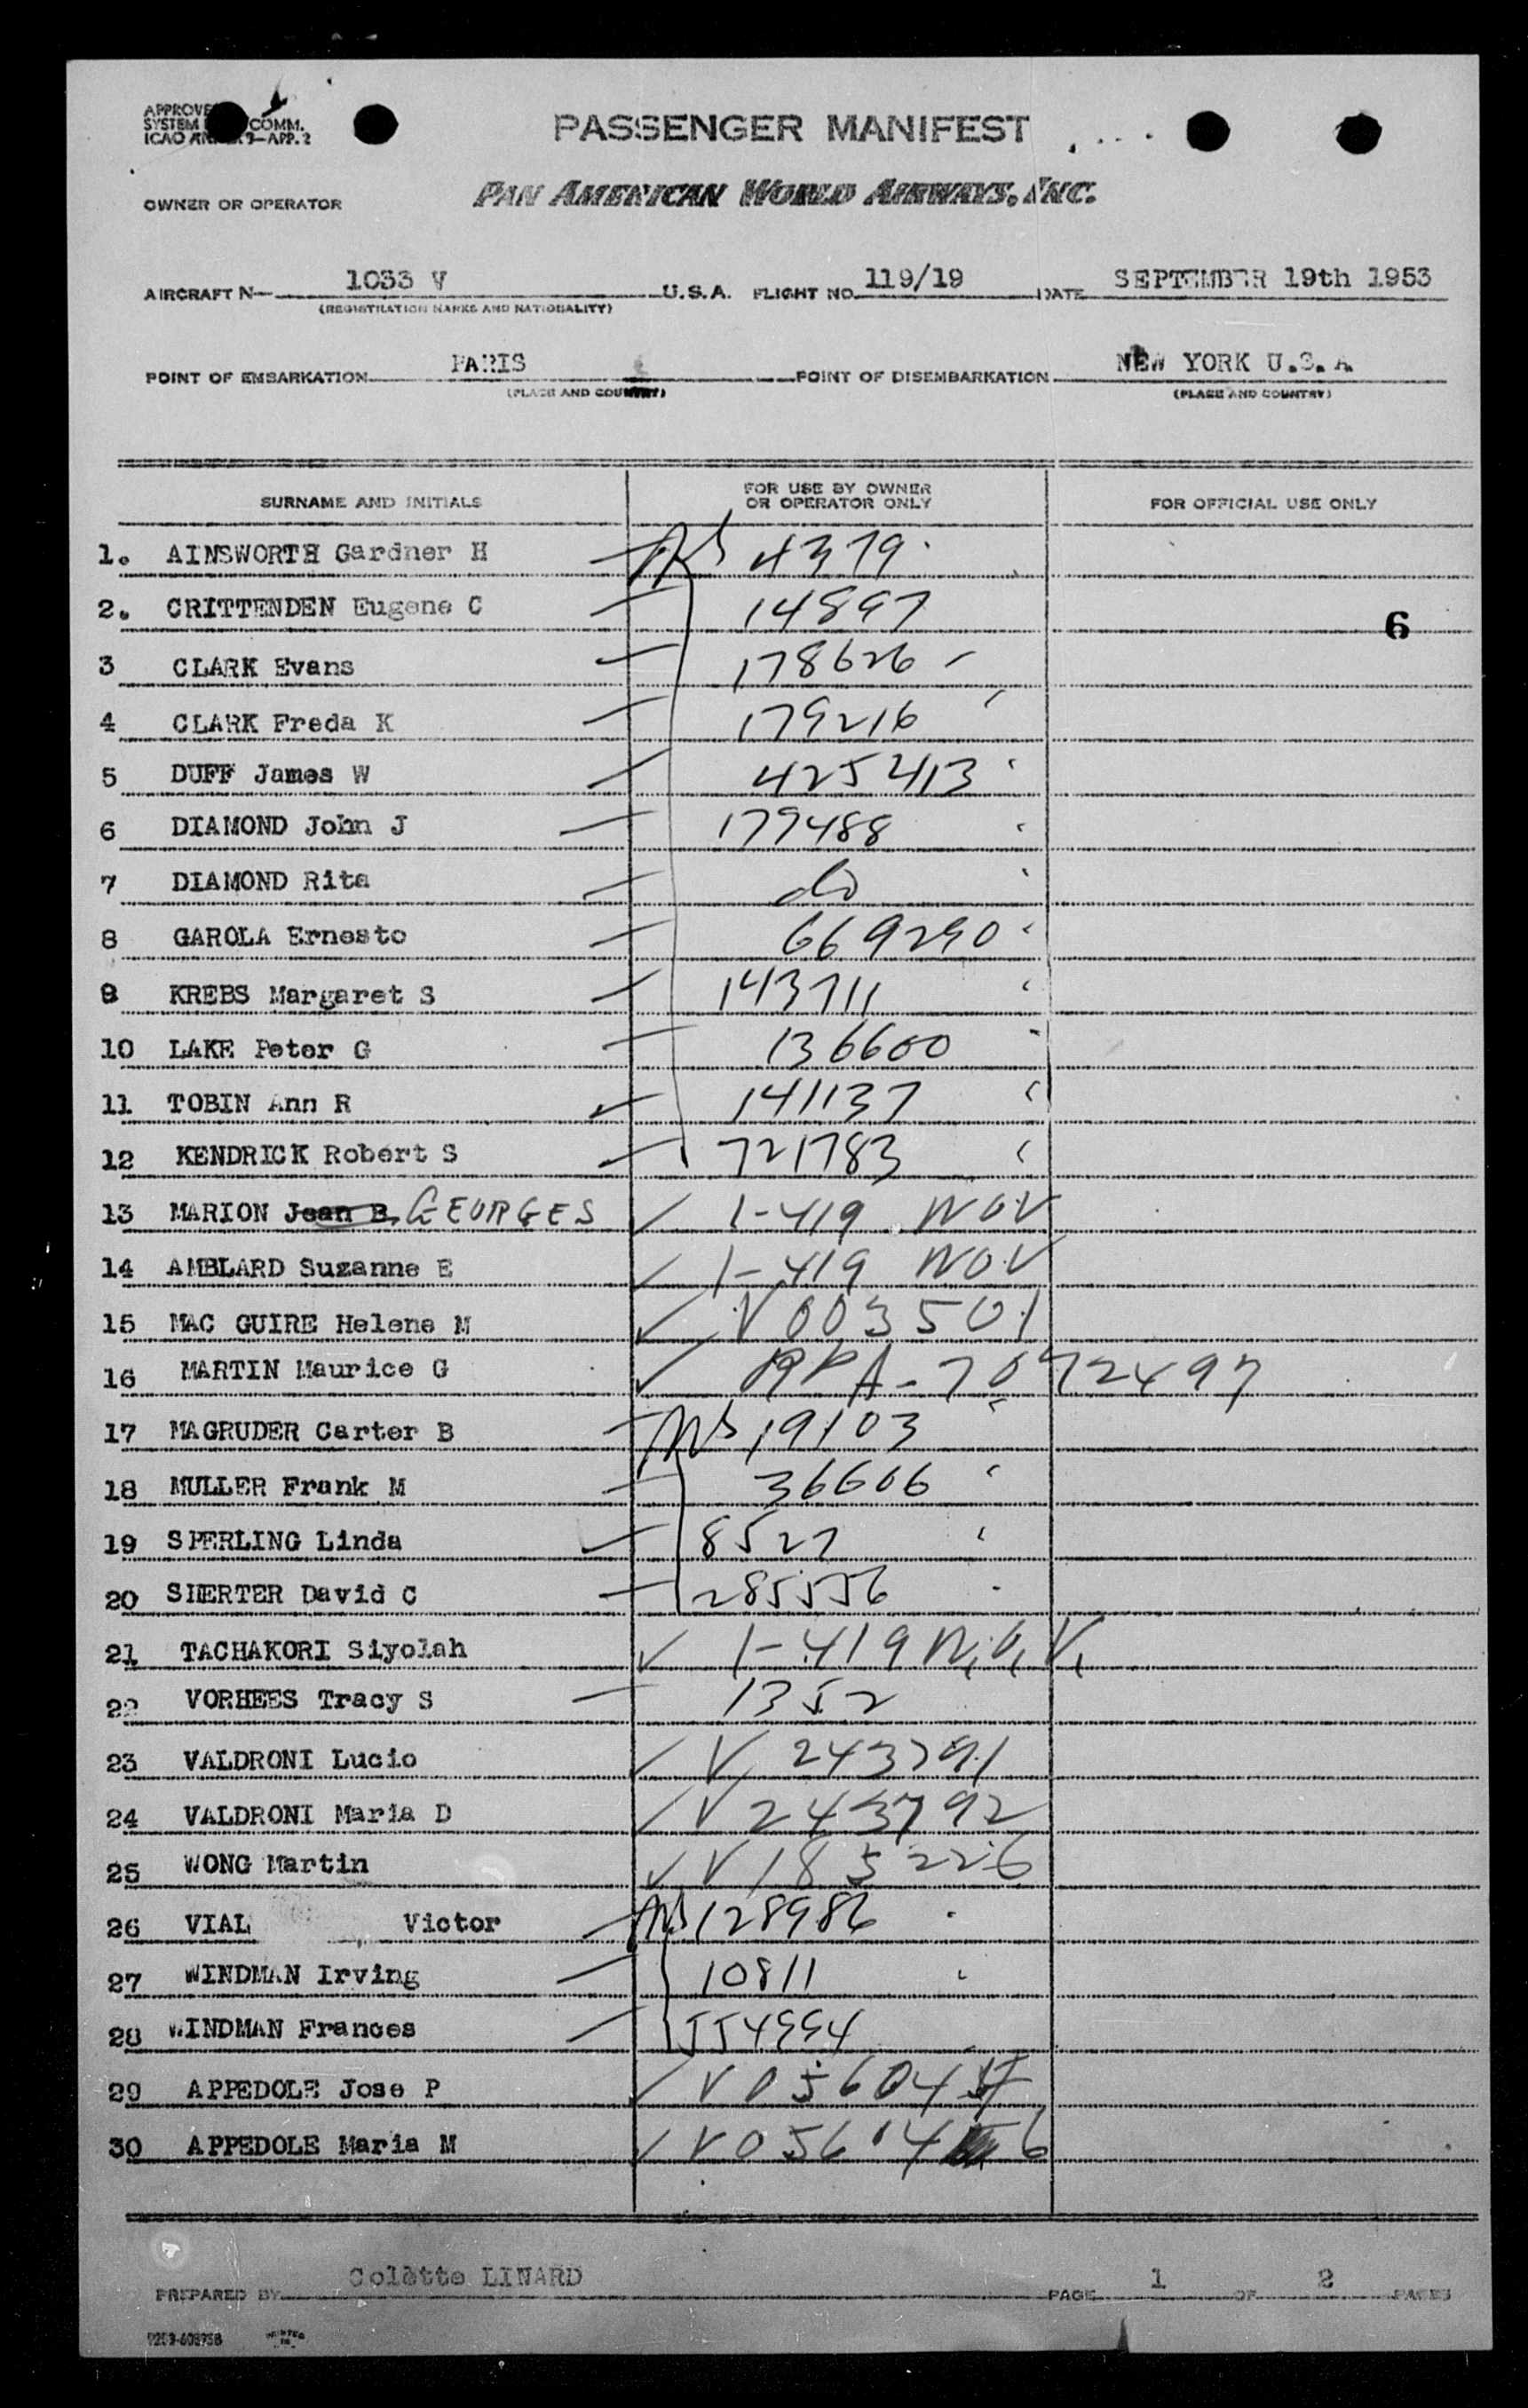 PASSENGER MANIFEST
OWNER OR OPERATOR PAN AMERICAN WORLD AIRWAYS, INC.
AIRCRAFT N— 1033 V U.S.A. FLIGHT NO. 119/19 DATE SEPTEMBER 19th 1953
(REGISTRATION MARKS AND NATIONALITY)
POINT OF EMBARKATION PARIS POINT OF DISEMBARKATION NEW YORK U.S.A.
(PLACE AND COUNTRY) (PLACE AND COUNTRY)
SURNAME AND INITIALS FOR USE BY OWNER OR OPERATOR ONLY FOR OFFICIAL USE ONLY
1. AINSWORTH Gardner H 4379
2. CRITTENDEN Eugene C 14897 6
3 CLARK Evans 178626
4 CLARK Freda K 179216
5 DUFF James W 425413
6 DIAMOND John J 179488
7 DIAMOND Rita do
8 GAROLA Ernesto 669290
9 KREBS Margaret S 143711
10 LAKE Peter G 136600
11 TOBIN Ann R 141137
12 KENDRICK Robert S 721783
13 MARION Jean B. GEORGES ✓ 1-419 NOV
14 AMBLARD Suzanne E ✓ 1-419 NOV
15 MAC GUIRE Helene M ✓ V003501
16 MARTIN Maurice G ✓ 72497
17 MAGRUDER Carter B 19103
18 MULLER Frank M 36606
19 SPERLING Linda 8527
20 SHERTER David C 285556
21 TACHAKORI Siyolah ✓ 1-419 N.O.V.
22 VORHEES Tracy S 1352
23 VALDRONI Lucio ✓ V 243791
24 VALDRONI Maria D ✓ V 243792
25 WONG Martin ✓ V 185226
26 VIAL Victor 128986
27 WINDMAN Irving 10811
28 WINDMAN Frances 554994
29 APPEDOLE Jose P ✓
30 APPEDOLE Maria M ✓
PREPARED BY Colette LINARD PAGE 1 OF 2 PAGES